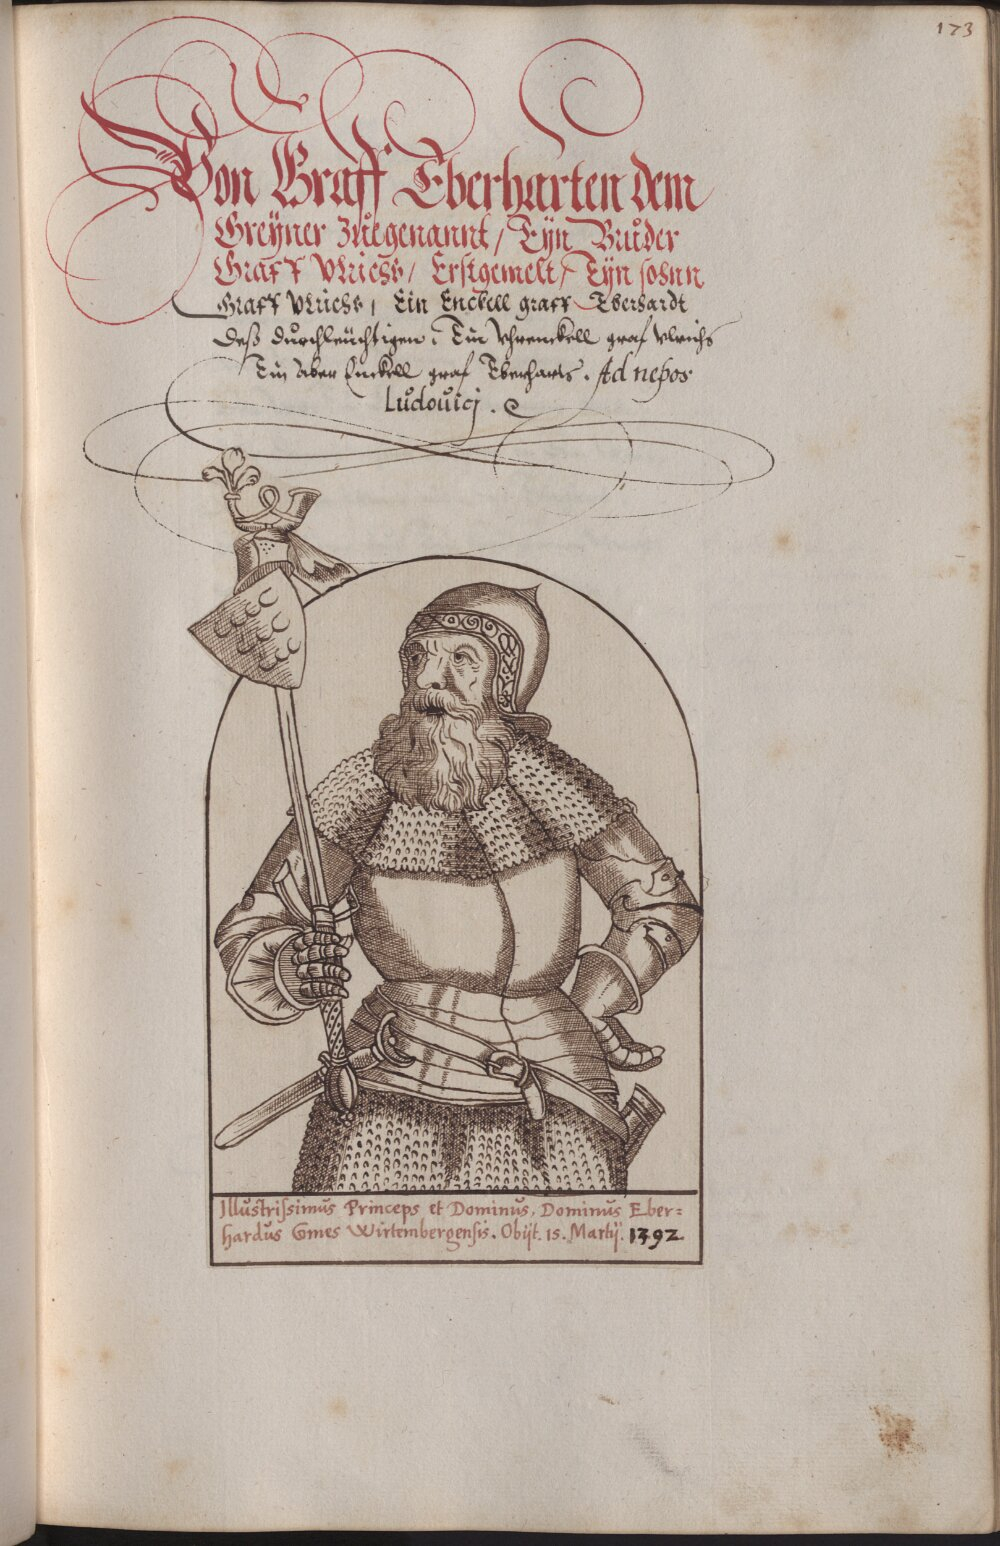 173
Von Graff Eberharten dem
Greÿner Zůegenannt / Eÿn Brůder
Graff Vlrichs / Erstgemelt / Eÿn sohnn
Graff Vlrichs / Ein Enckell graff Eberhardt
deß durchleüchtigen. Ein Vhrenckell graf Vlrichs
Ein Aber Enckell graf Eberharts. Ad nepos
Ludouicj.
Illustrissimus Princeps et Dominus, Dominus Eber=
hardus Comes Wirtembergensis. Obijt. 15. Martij. 1392